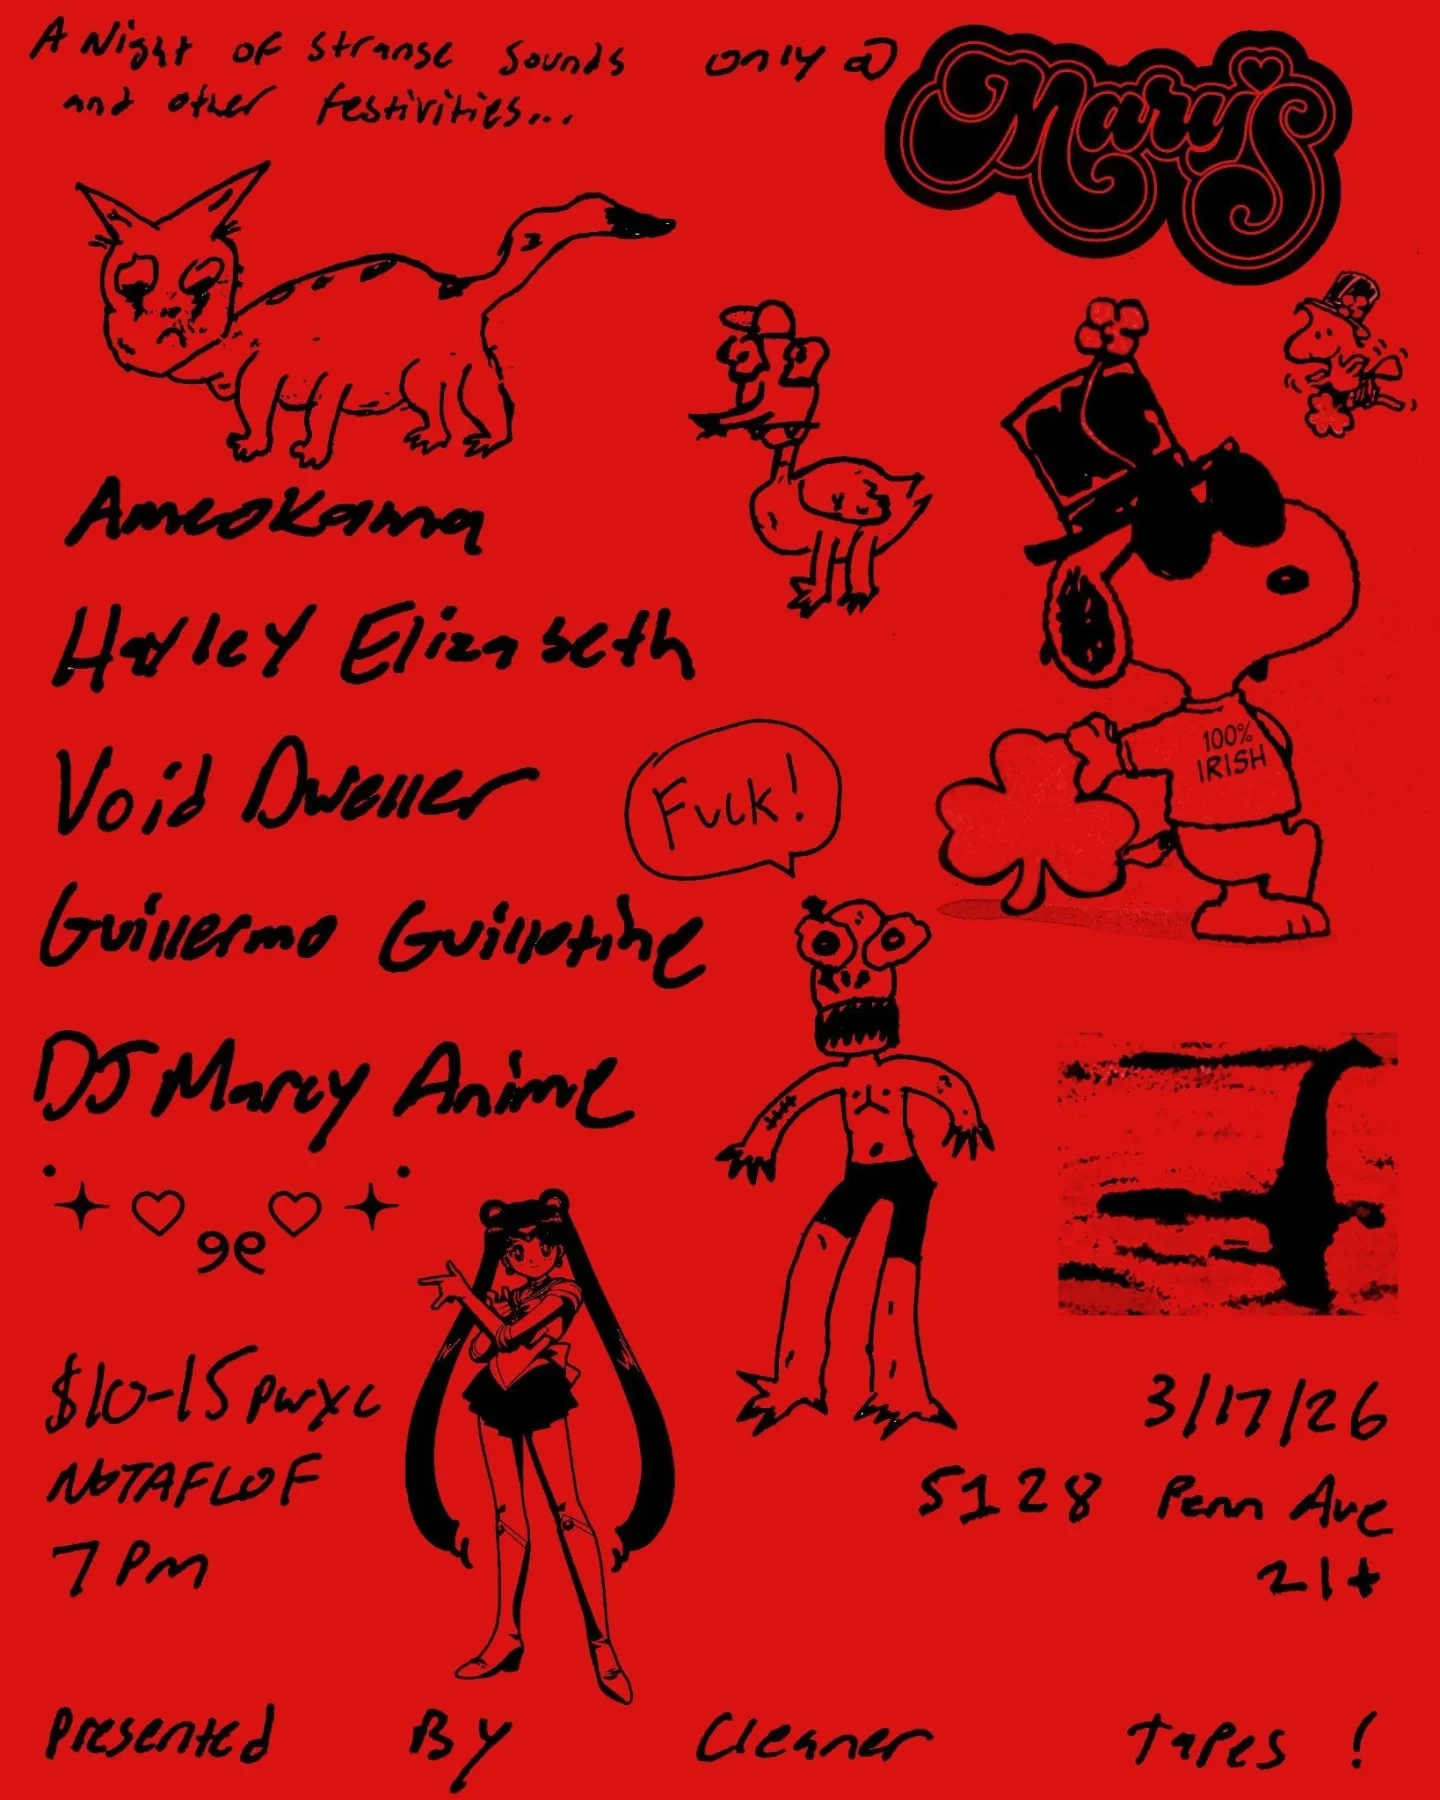 A Night of Strange Sounds only @ Mary's
and other festivities...
Ameokama
Hayley Elizabeth
Void Dweller
Fuck!
100%
IRISH
Guillermo Guillotine
DJ Marcy Anime
$10-15 pwyc
NOTAFLOF
7 PM
3/17/26
5128 Penn Ave
21+
Presented By Cleaner Tapes!